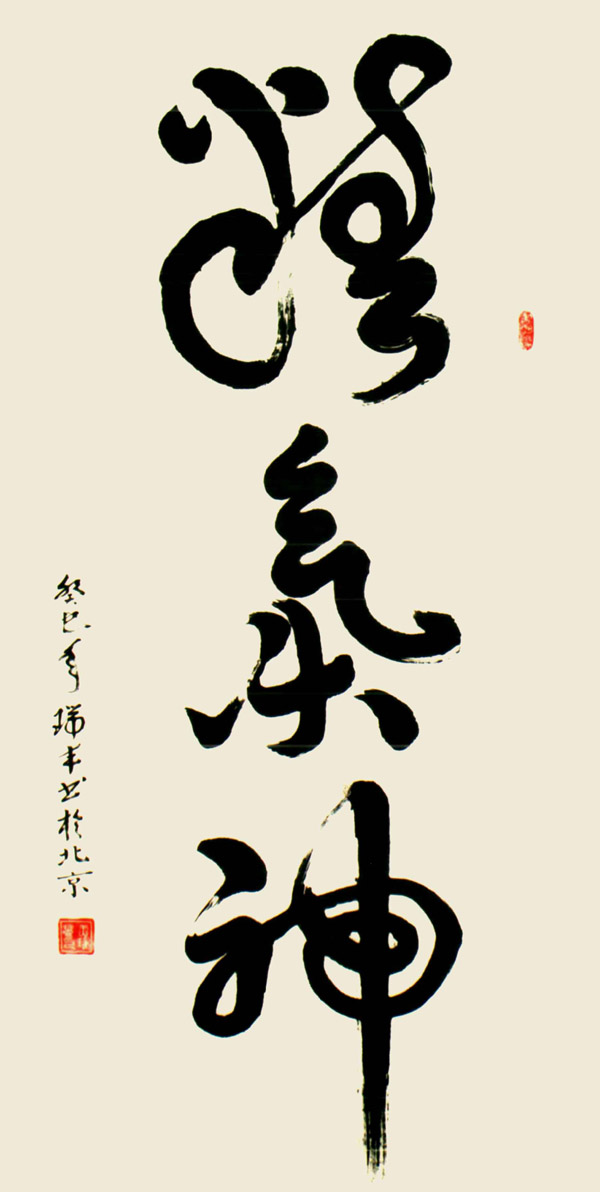 精氣神
癸巳年瑞丰书於北京